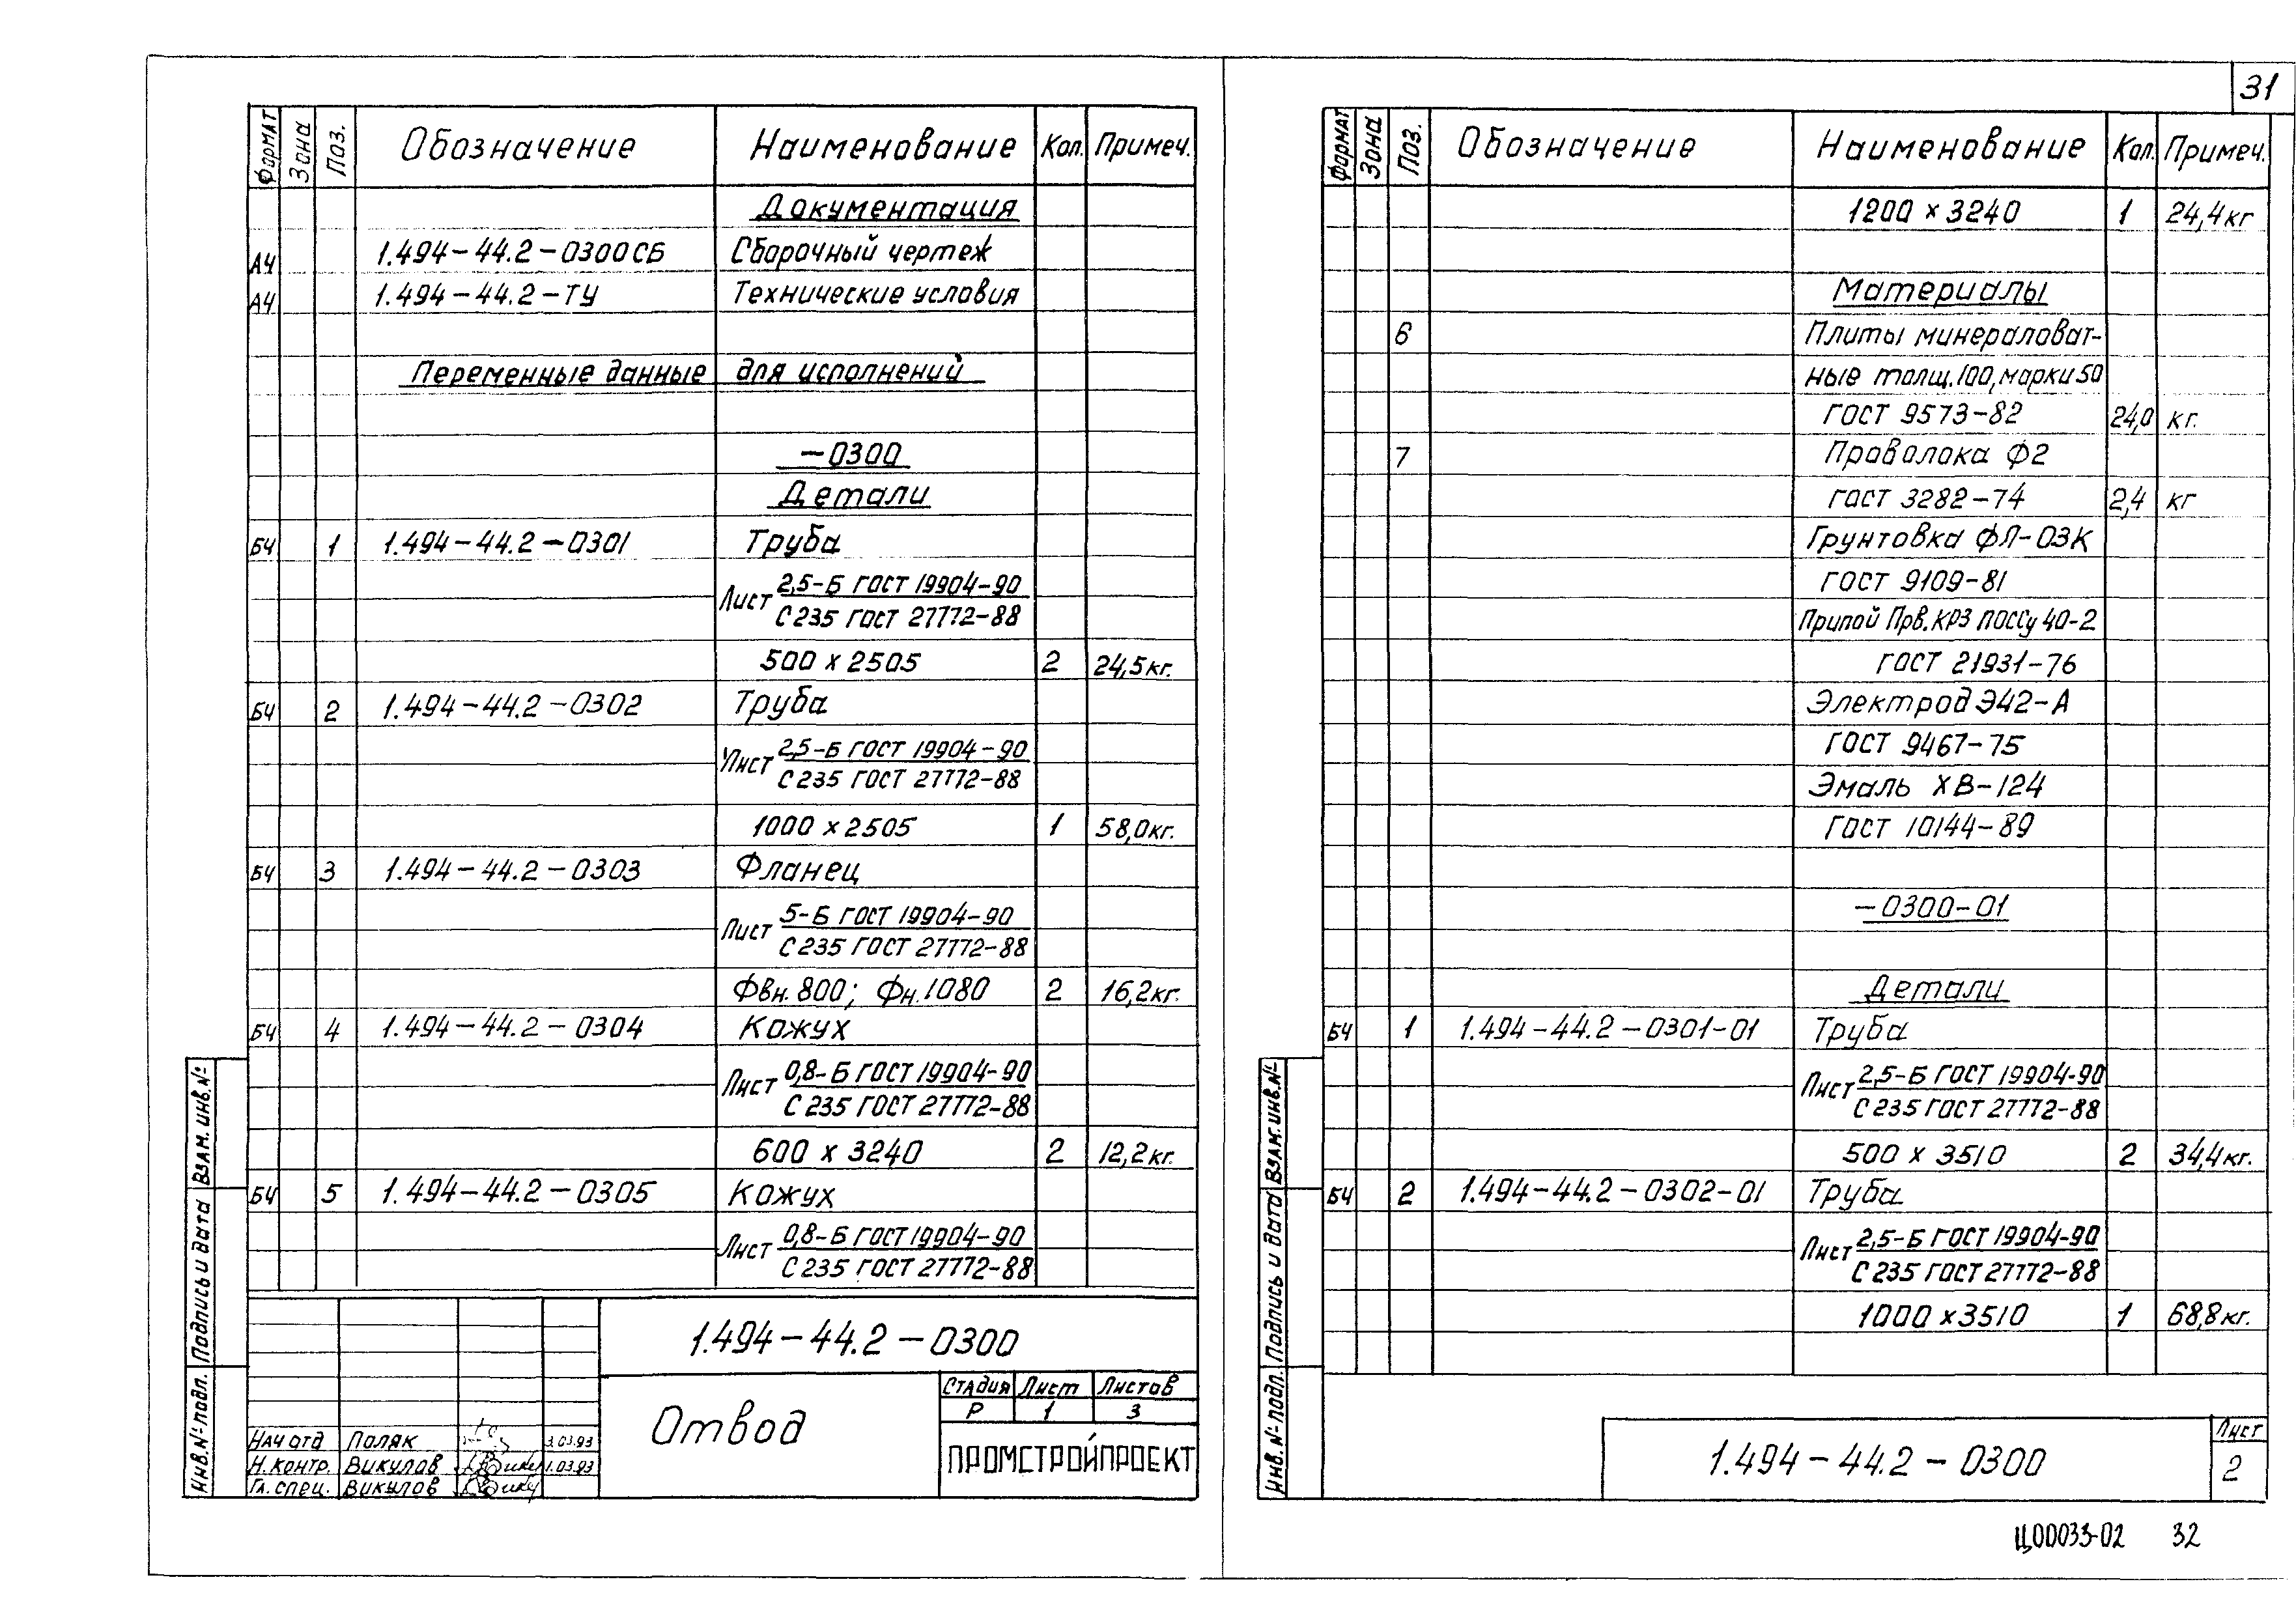 31
Формат Зона Поз. Обозначение Наименование Кол. Примеч.
Документация
А4 1.494-44.2-0300СБ Сборочный чертеж
А4 1.494-44.2-ТУ Технические условия
Переменные данные для исполнений
-0300
Детали
БЧ 1 1.494-44.2-0301 Труба
Лист 2,5-Б ГОСТ 19904-90
С235 ГОСТ 27772-88
500 х 2505 2 24,5кг.
БЧ 2 1.494-44.2-0302 Труба
Лист 2,5-Б ГОСТ 19904-90
С235 ГОСТ 27772-88
1000 х 2505 1 58,0кг.
БЧ 3 1.494-44.2-0303 Фланец
Лист 5-Б ГОСТ 19904-90
С235 ГОСТ 27772-88
Фвн.800; Фн.1080 2 16,2кг.
БЧ 4 1.494-44.2-0304 Кожух
Лист 0,8-Б ГОСТ 19904-90
С235 ГОСТ 27772-88
600 х 3240 2 12,2кг.
БЧ 5 1.494-44.2-0305 Кожух
Лист 0,8-Б ГОСТ 19904-90
С235 ГОСТ 27772-88
1.494-44.2-0300
Отвод
Стадия Лист Листов
Р 1 3
ПРОМСТРОЙПРОЕКТ
Нач отд Поляк 3.03.93
Н.контр. Викулов 1.03.93
Гл.спец. Викулов
Инв.№ подл. Подпись и дата Взам.инв.№
Формат Зона Поз. Обозначение Наименование Кол. Примеч.
1200 х 3240 1 24,4кг
Материалы
6 Плиты минераловат-
ные толщ.100, марки 50
ГОСТ 9573-82 24,0 кг.
7 Проволока Ф2
ГОСТ 3282-74 2,4 кг
Грунтовка ФЛ-03К
ГОСТ 9109-81
Припой Прв.КР3 ПОССу 40-2
ГОСТ 21931-76
Электрод Э42-А
ГОСТ 9467-75
Эмаль ХВ-124
ГОСТ 10144-89
-0300-01
Детали
БЧ 1 1.494-44.2-0301-01 Труба
Лист 2,5-Б ГОСТ 19904-90
С235 ГОСТ 27772-88
500 х 3510 2 34,4кг.
БЧ 2 1.494-44.2-0302-01 Труба
Лист 2,5-Б ГОСТ 19904-90
С235 ГОСТ 27772-88
1000 х 3510 1 68,8кг.
Инв.№ подл. Подпись и дата Взам.инв.№
1.494-44.2-0300
Лист
2
Ц00033-02 32